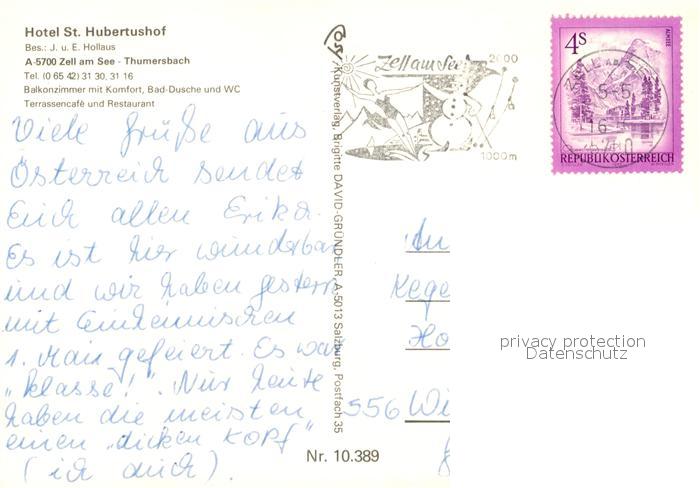 Hotel St. Hubertushof
Bes.: J. u. E. Hollaus
A-5700 Zell am See - Thumersbach
Tel. (0 65 42) 31 30, 31 16
Balkonzimmer mit Komfort, Bad-Dusche und WC
Terrassencafé und Restaurant
Viele Grüße aus
Österreich sendet
Euch allen Erika.
Es ist hier wunderbar
und wir haben gestern
mit Einheimischen
1. Mai gefeiert. Es war
„Klasse!". Nur heute
haben die meisten
einen „dicken Kopf"
(ich auch).
Kunstverlag, Brigitte DAVID-GRÜNDLER, A-5013 Salzburg, Postfach 35
Nr. 10.389
Zell am See
2000
1000 m
4 S
ALMSEE
REPUBLIK ÖSTERREICH
An
Kege
Ho
556 Wi
privacy protection
Datenschutz